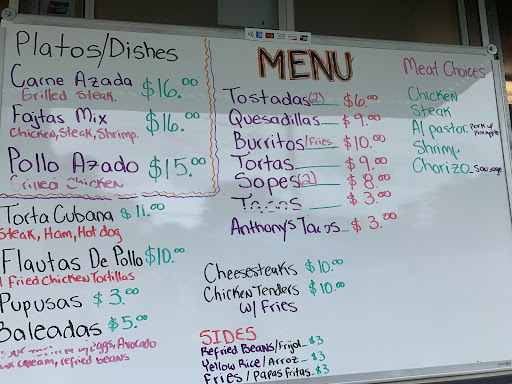 Platos/Dishes
Carne Azada $16.00
Grilled Steak.
Fajtas Mix $16.00
Chicken, Steak, Shrimp.
Pollo Azado $15.00
Grilled Chicken
Torta Cubana $11.00
Steak, Ham, Hot dog
Flautas De Pollo $10.00
Fried Chicken Tortillas
Pupusas $3.00
Baleadas $5.00
Eggs, Avocado
cream, refried beans
MENU
Tostadas(2) $6.00
Quesadillas $9.00
Burritos/Fries $10.00
Tortas $9.00
Sopes(2) $8.00
Tacos $3.00
Anthony's Tacos $3.00
Cheesesteaks $10.00
Chicken Tenders $10.00
w/ Fries
SIDES
Refried Beans/Frijol $3
Yellow Rice/Arroz $3
Fries/Papas Fritas $3
Meat Choices
Chicken
Steak
Al pastor Pork w/ pineapple
Shrimp
Chorizo - Sausage